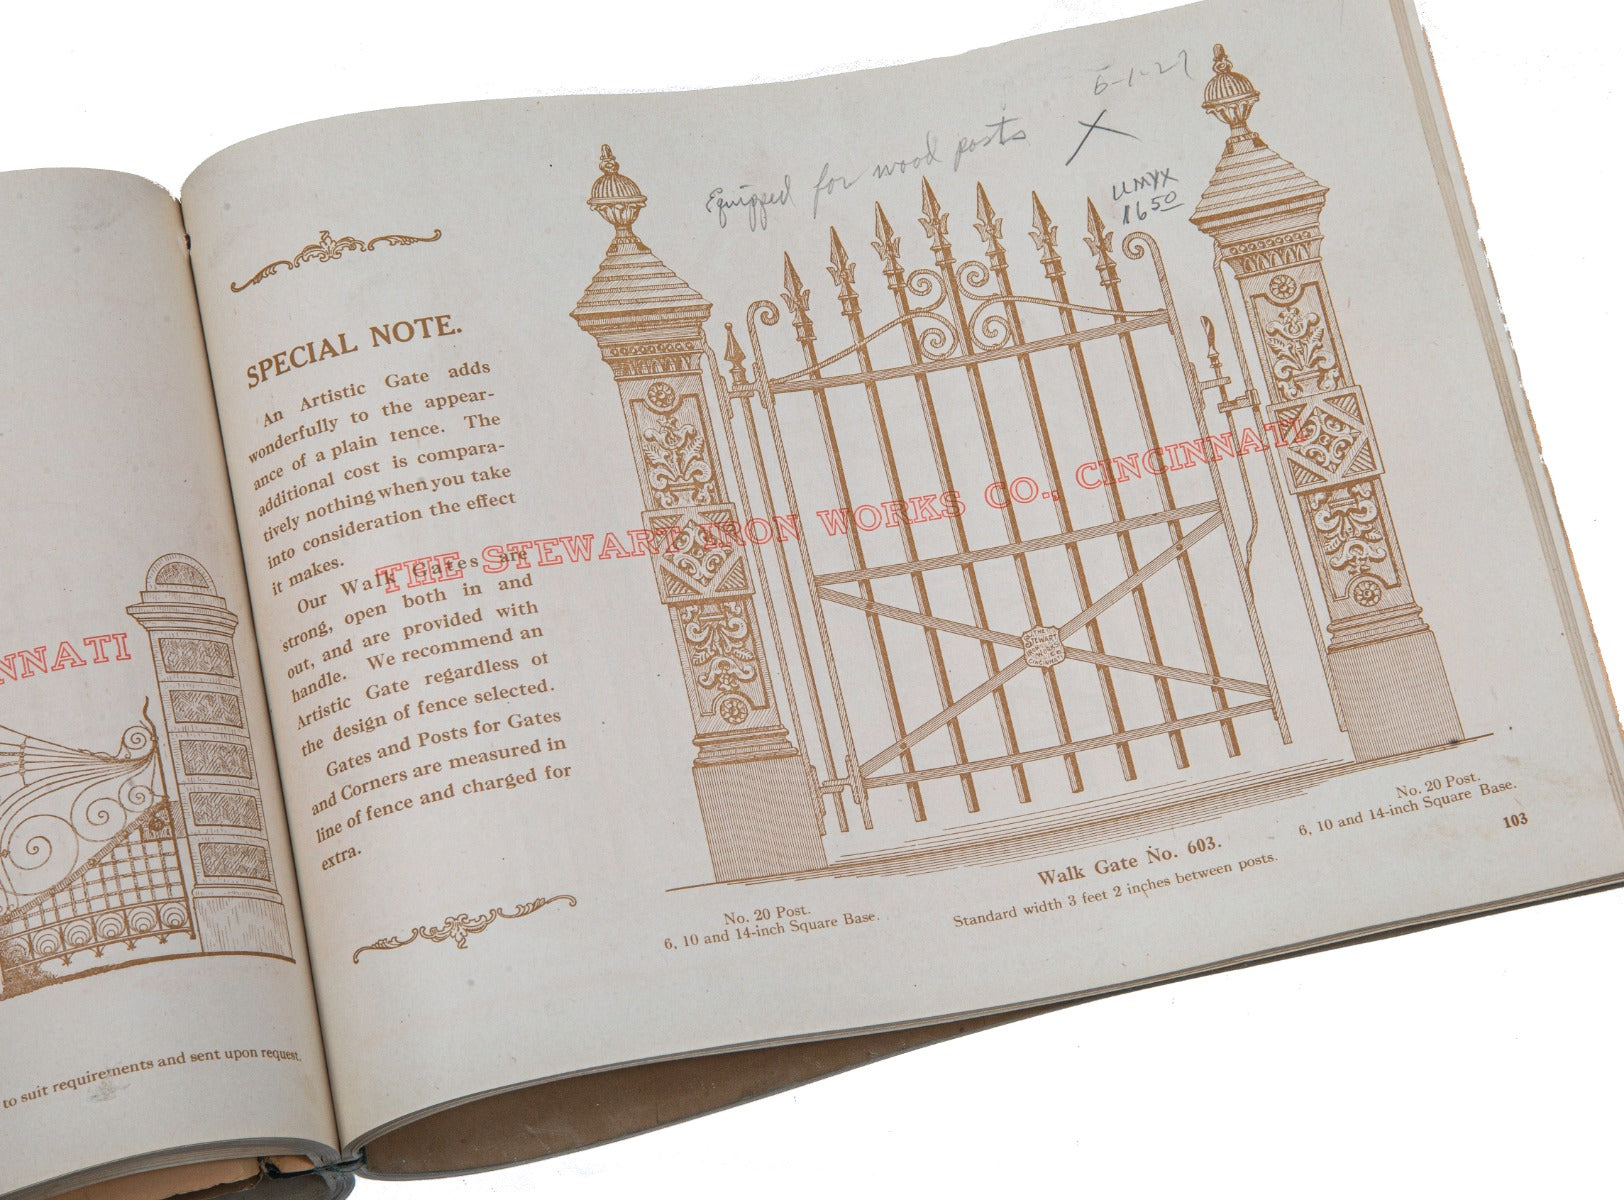 NNATI
to suit requirements and sent upon request.
SPECIAL NOTE.
An Artistic Gate adds
wonderfully to the appear-
ance of a plain fence. The
additional cost is compara-
tively nothing when you take
into consideration the effect
it makes.
Our Walk Gates are
strong, open both in and
out, and are provided with
handle. We recommend an
Artistic Gate regardless of
the design of fence selected.
Gates and Posts for Gates
and Corners are measured in
line of fence and charged for
extra.
6-1-27
Equipped for wood posts
X
UMYX
16 50
THE STEWART IRON WORKS CO., CINCINNATI
THE
STEWART
IRON
WORKS
CINCINNATI
No. 20 Post.
6, 10 and 14-inch Square Base.
Walk Gate No. 603.
Standard width 3 feet 2 inches between posts.
No. 20 Post.
6, 10 and 14-inch Square Base.
103